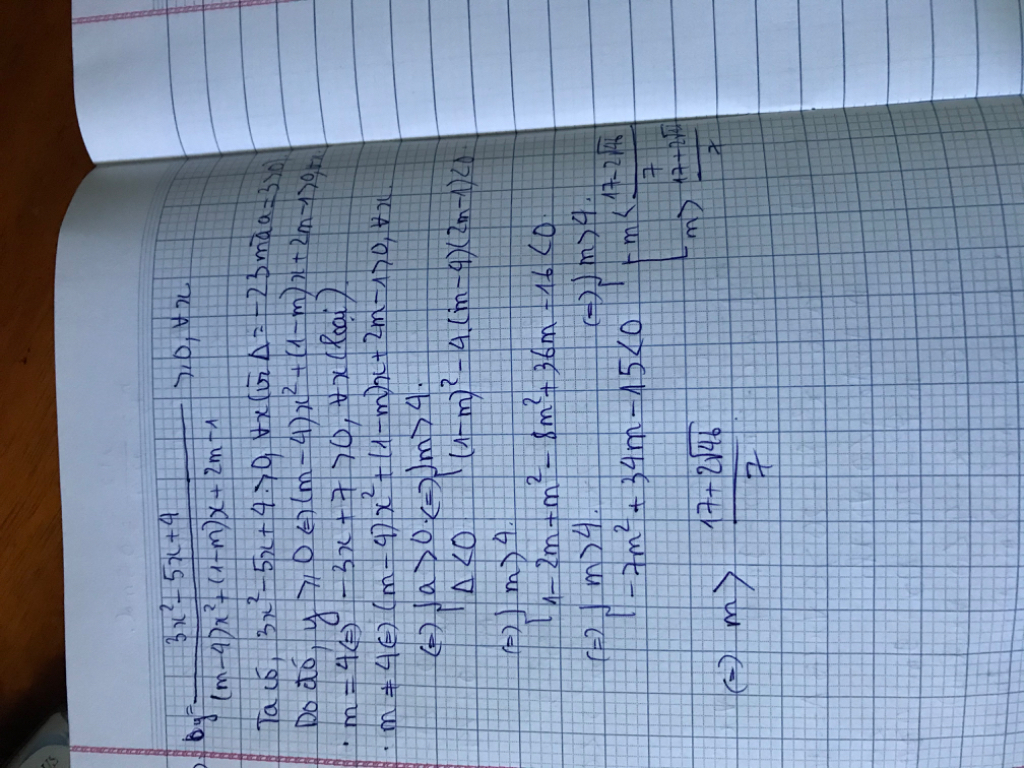 b) y = (3x² - 5x + 4)/((m-4)x² + (1-m)x + 2m-1) ≥ 0, ∀x
Ta có, 3x² - 5x + 4 > 0, ∀x (vì Δ = -23 mà a = 3 > 0)
Do đó, y ≥ 0 (=) (m-4)x² + (1-m)x + 2m-1 > 0, ∀x
. m = 4 (=) -3x + 7 > 0, ∀x (loại).
. m ≠ 4 (=) (m-4)x² + (1-m)x + 2m-1 > 0, ∀x
(=) { a > 0 . (=) { m > 4.
Δ < 0 (1-m)² - 4.(m-4)(2m-1) < 0
(=) { m > 4.
1 - 2m + m² - 8m² + 36m - 16 < 0.
(=) { m > 4. (=) { m > 4.
-7m² + 34m - 15 < 0 [ m < (17-2√46)/7
m > (17+2√46)/7
(=) m > (17+2√46)/7